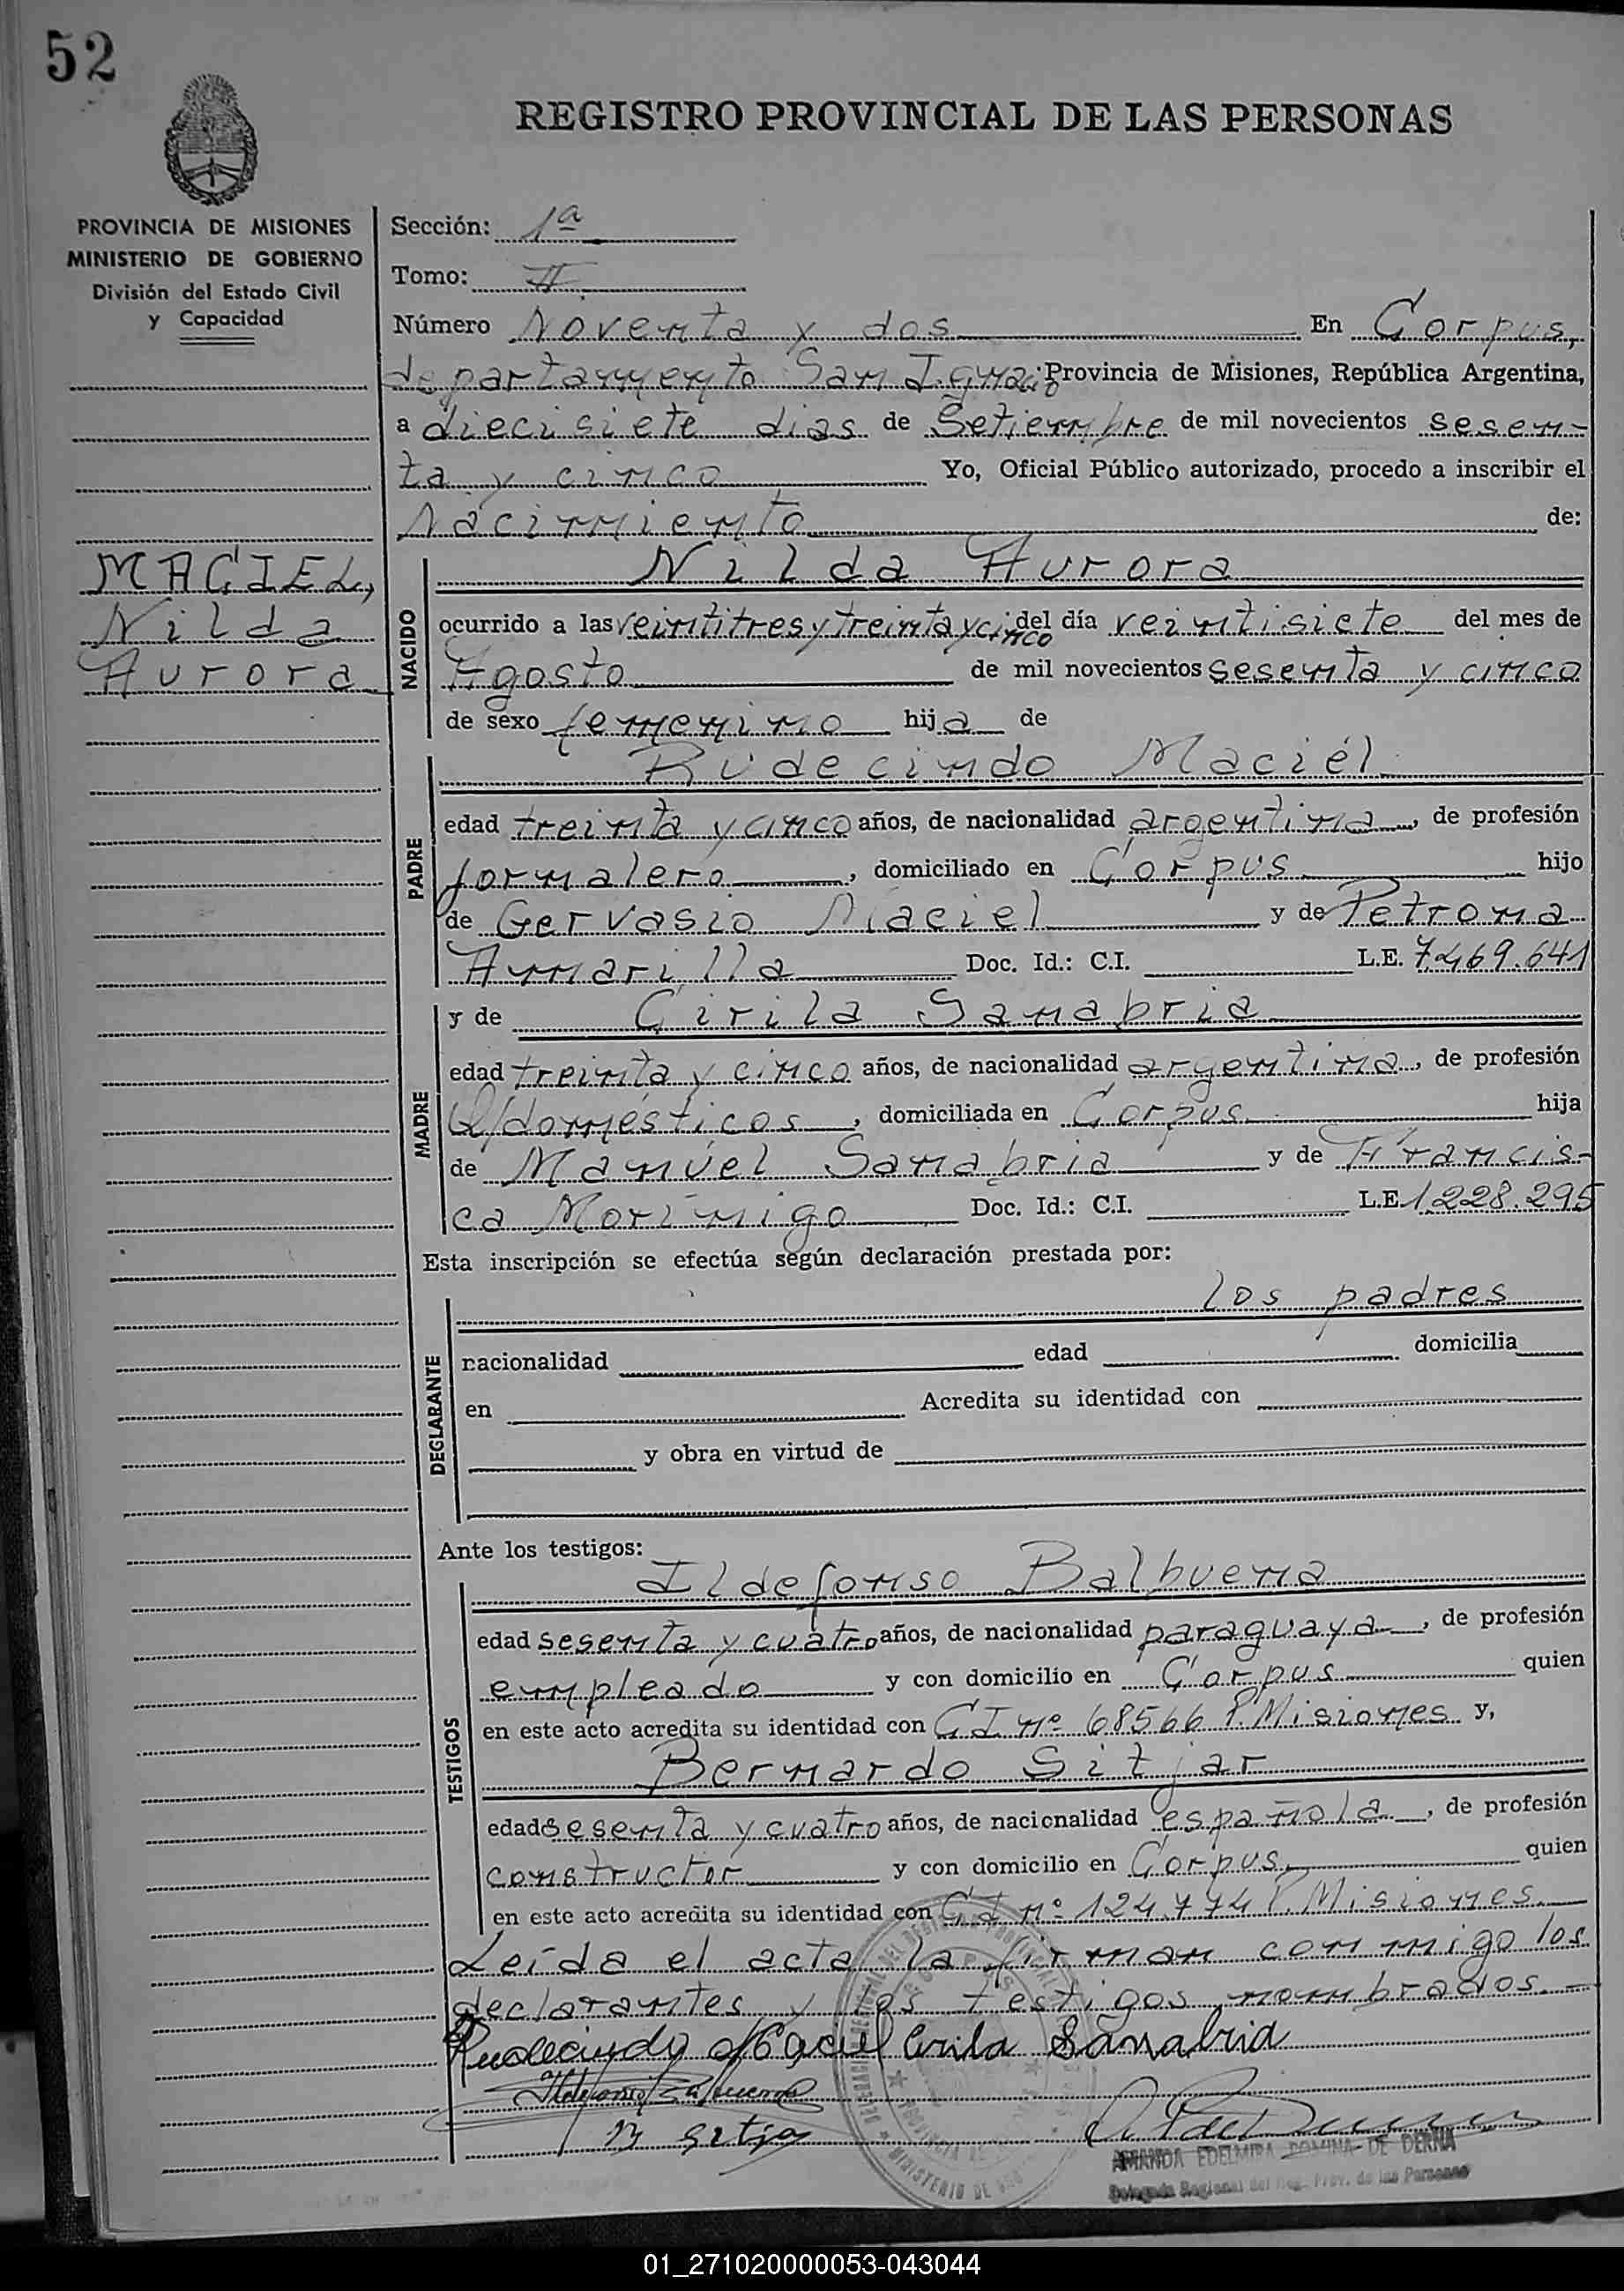 52
REGISTRO PROVINCIAL DE LAS PERSONAS
PROVINCIA DE MISIONES
MINISTERIO DE GOBIERNO
División del Estado Civil
y Capacidad
Sección: 1ª
Tomo: II
Número Noventa y dos En Corpus,
departamento San Ignacio Provincia de Misiones, República Argentina,
a diecisiete dias de Setiembre de mil novecientos sesen-
ta y cinco Yo, Oficial Público autorizado, procedo a inscribir el
Nacimiento de:
MACIEL,
Nilda
Aurora
NACIDO
Nilda Aurora
ocurrido a las veintitres y treinta y cinco del día veintisiete del mes de
Agosto de mil novecientos sesenta y cinco
de sexo femenino hija de
PADRE
Rudecindo Maciél
edad treinta y cinco años, de nacionalidad argentina, de profesión
jornalero, domiciliado en Corpus hijo
de Gervasio Maciel y de Petrona
Aymarilla Doc. Id.: C.I. L.E. 7.469.641
MADRE
y de Cirila Sanabria
edad treinta y cinco años, de nacionalidad argentina, de profesión
Q/domésticos, domiciliada en Corpus hija
de Manuel Sanabria y de Francis-
ca Morinigo Doc. Id.: C.I. L.E. 1.228.295
Esta inscripción se efectúa según declaración prestada por:
DECLARANTE
los padres
nacionalidad edad domicilia
en Acredita su identidad con
y obra en virtud de
Ante los testigos:
TESTIGOS
Ildefonso Balbuena
edad sesenta y cuatro años, de nacionalidad paraguaya, de profesión
empleado y con domicilio en Corpus quien
en este acto acredita su identidad con C I nº 68566 P. Misiones y,
Bernardo Sitjar
edad sesenta y cuatro años, de nacionalidad española, de profesión
constructor y con domicilio en Corpus quien
en este acto acredita su identidad con C I nº 124.774 P. Misiones.
Leída el acta la firman conmigo los
declarantes y los testigos nombrados.-
Rudecindo Maciel Cirila Sanabria
Ildefonso Balbuena
B Sitjar
AMANDA EDELMIRA DOMINA DE DERNA
Delegada Regional del Reg. Prov. de las Personas
01_271020000053-043044